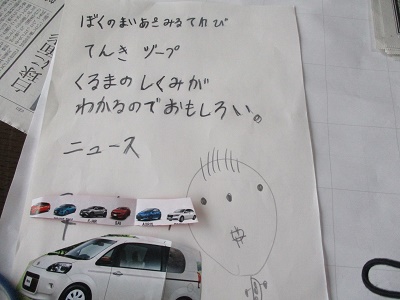 ぼくのまいあさみるてれび
てんき ヅープ
くるまのしくみが
わかるのでおもしろい。
ニュース